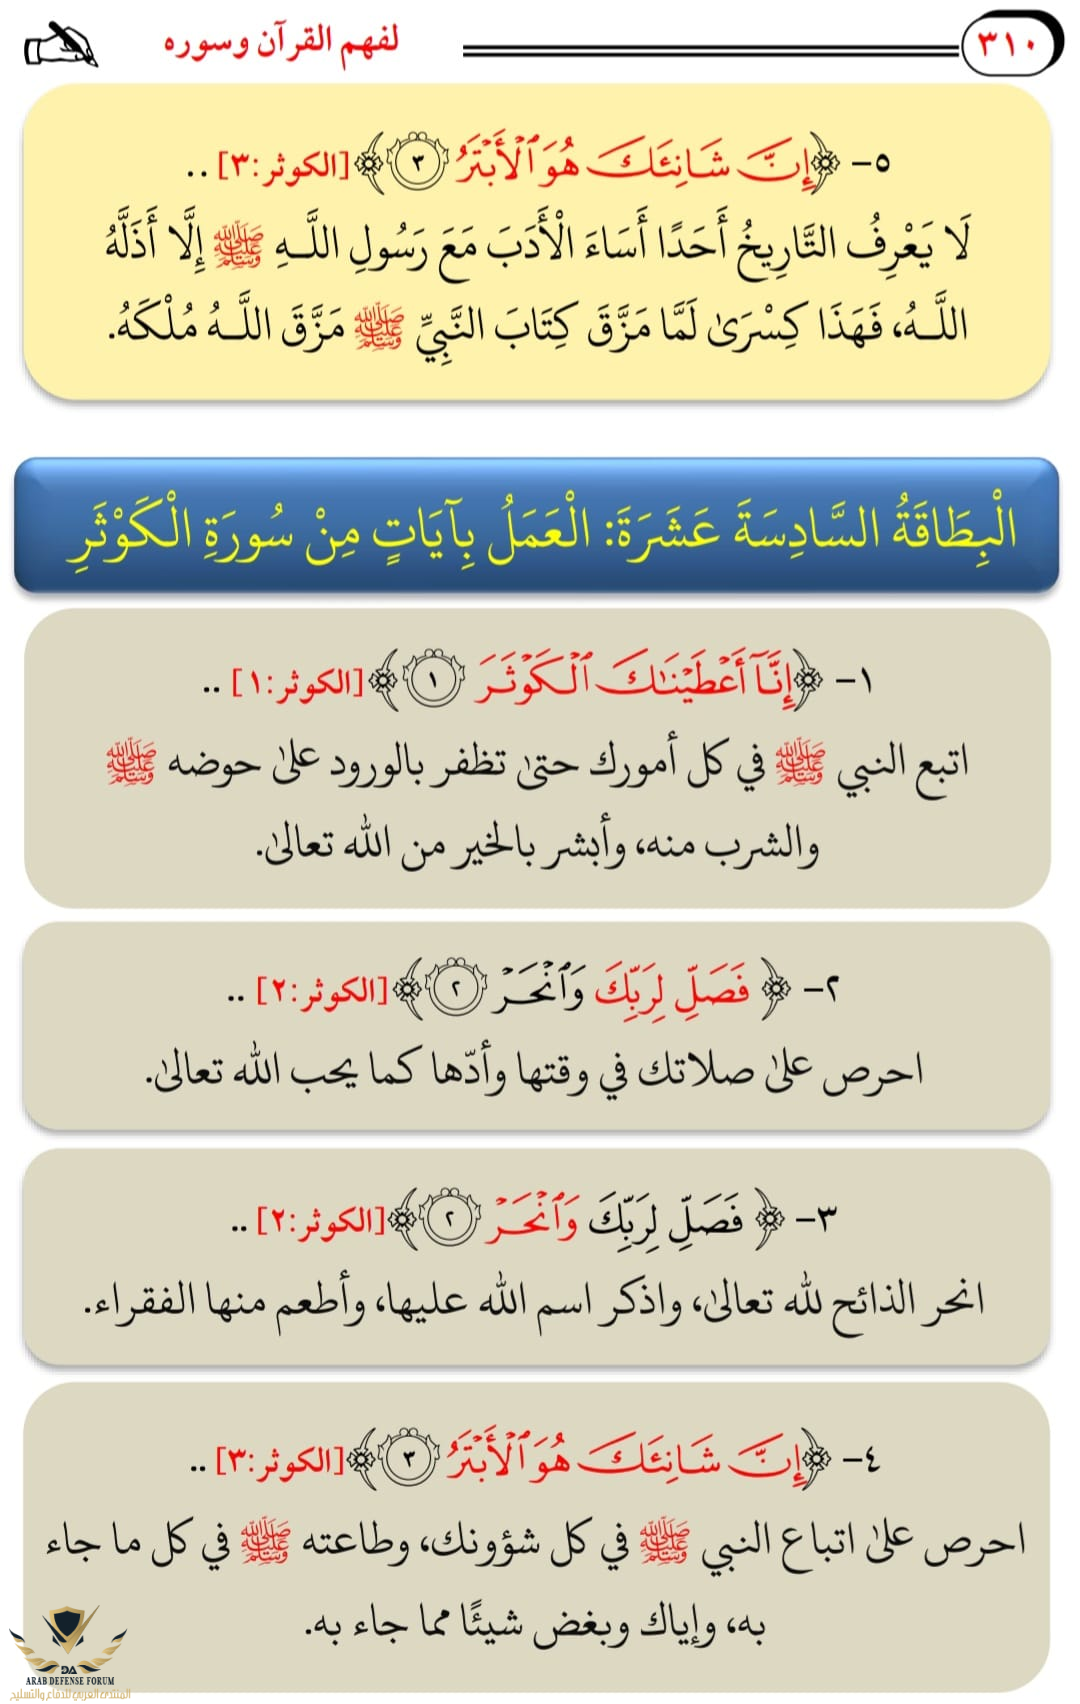 ٣١٠
لفهم القرآن وسوره
٥- ﴿إِنَّ شَانِئَكَ هُوَ ٱلْأَبْتَرُ ٣﴾ [الكوثر:٣] ..
لَا يَعْرِفُ التَّارِيخُ أَحَدًا أَسَاءَ الْأَدَبَ مَعَ رَسُولِ اللَّـهِ ﷺ إِلَّا أَذَلَّهُ
اللَّـهُ، فَهَذَا كِسْرَىٰ لَمَّا مَزَّقَ كِتَابَ النَّبِيِّ ﷺ مَزَّقَ اللَّـهُ مُلْكَهُ.
الْبِطَاقَةُ السَّادِسَةَ عَشَرَةَ: الْعَمَلُ بِآيَاتٍ مِنْ سُورَةِ الْكَوْثَرِ
١- ﴿إِنَّآ أَعْطَيْنَٰكَ ٱلْكَوْثَرَ ١﴾ [الكوثر:١] ..
اتبع النبي ﷺ في كل أمورك حتىٰ تظفر بالورود علىٰ حوضه ﷺ
والشرب منه، وأبشر بالخير من الله تعالىٰ.
٢- ﴿فَصَلِّ لِرَبِّكَ وَٱنْحَرْ ٢﴾ [الكوثر:٢] ..
احرص علىٰ صلاتك في وقتها وأدّها كما يحب الله تعالىٰ.
٣- ﴿فَصَلِّ لِرَبِّكَ وَٱنْحَرْ ٢﴾ [الكوثر:٢] ..
انحر الذائح لله تعالىٰ، واذكر اسم الله عليها، وأطعم منها الفقراء.
٤- ﴿إِنَّ شَانِئَكَ هُوَ ٱلْأَبْتَرُ ٣﴾ [الكوثر:٣] ..
احرص علىٰ اتباع النبي ﷺ في كل شؤونك، وطاعته ﷺ في كل ما جاء
به، وإياك وبغض شيئًا مما جاء به.
DA
ARAB DEFENSE FORUM
المنتدى العربي للدفاع والتسليح